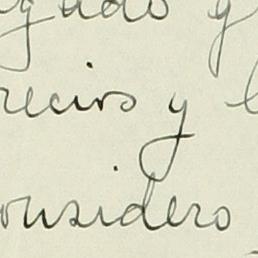 gado y
recivo y
onsidero